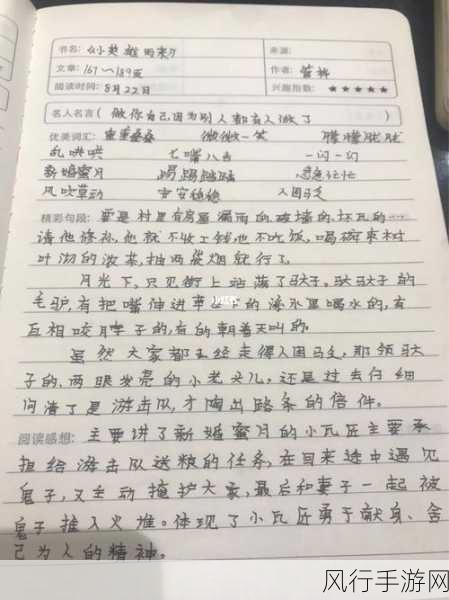 书名:《小英雄雨来》 来源:
文章:167~189页 作者:管桦
阅读时间:8月22日 兴趣指数:★★★★★
名人名言(做你自己因为别人都有人做了
优美词汇:重重叠叠 微微一笑 朦朦胧胧
乱哄哄 七嘴八舌 一闪一闪
新婚蜜月 急急忙忙
风吹草动 安安稳稳 人困马乏
精彩句段:要是村里有房屋漏雨的,破墙的,坏瓦的……
请他修补,他就不收工钱,也不吃饭,喝碗枣树
叶沏的浓茶,抽两袋烟就行了。
月光下,只见街上站满了驮子。驮驮子的
毛驴,有把嘴伸进车下的海水里喝水的,有
互相咬脖子的,有的朝着天叫的。
虽然大家都已经走得人困马乏,那领驮
子的、两眼发亮的小老头儿,还是过去仔细
问清了是游击队,才掏出路条的信件。
阅读感想:主要讲了新婚蜜月的小瓦匠主要承
担给游击队送粮的任务,在回来途中遇见
鬼子,又主动掩护大家,最后和妻子一起被
鬼子推入火堆。体现了小瓦匠勇于献身、舍
己为人的精神。
风行手游网